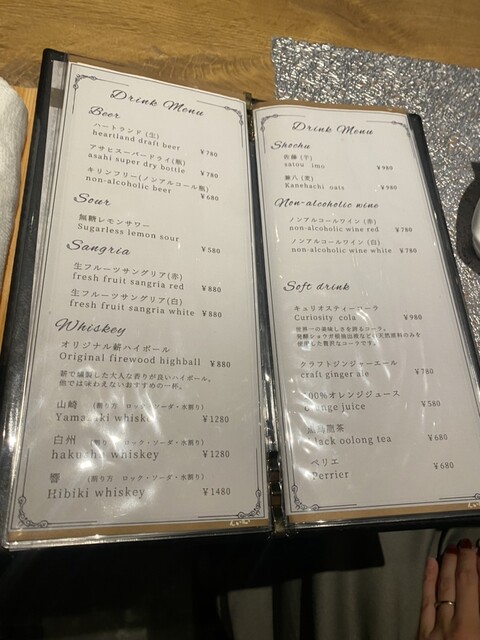 Drink Menu
Beer
ハートランド (生)
heartland draft beer ¥780
アサヒスーパードライ(瓶)
asahi super dry bottle ¥780
キリンフリー(ノンアルコール瓶)
non-alcoholic beer ¥680
Sour
無糖レモンサワー
Sugarless lemon sour ¥580
Sangria
生フルーツサングリア(赤)
fresh fruit sangria red ¥880
生フルーツサングリア(白)
fresh fruit sangria white ¥880
Whiskey
オリジナル薪ハイボール
Original firewood highball ¥880
薪で燻製した大人な香りが良いハイボール。
他では味わえないおすすめの一杯。
山崎 (割り方 ロック・ソーダ・水割り)
Yamazaki whiskey ¥1280
白州 (割り方 ロック・ソーダ・水割り)
hakushu whiskey ¥1280
響 (割り方 ロック・ソーダ・水割り)
Hibiki whiskey ¥1480
Drink Menu
Shochu
佐藤 (芋)
satou imo ¥980
兼八 (麦)
Kanehachi oats ¥980
Non-alcoholic wine
ノンアルコールワイン (赤)
non-alcoholic wine red ¥780
ノンアルコールワイン (白)
non-alcoholic wine white ¥780
Soft drink
キュリオスティーコーラ
Curiosity cola ¥980
世界一の美味しさを誇るコーラ。
発酵ショウガ根抽出液などの天然原料のみを
使用した贅沢なコーラです。
クラフトジンジャーエール
craft ginger ale ¥780
100%オレンジジュース
orange juice ¥580
黒烏龍茶
black oolong tea ¥680
ペリエ
Perrier ¥680